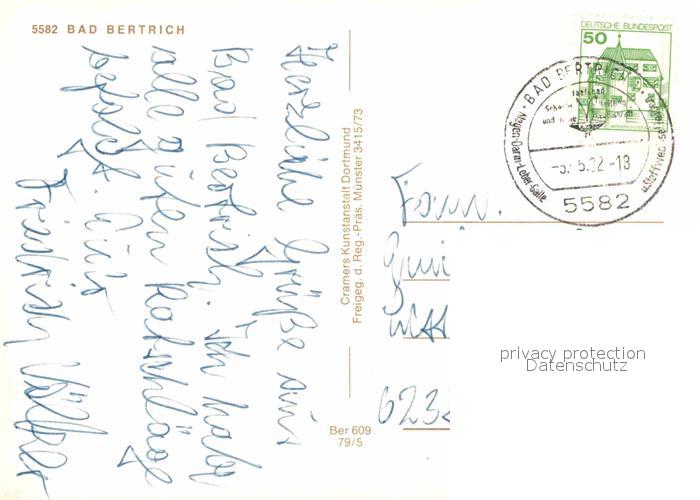 5582 BAD BERTRICH
Herzliche Grüße aus
Bad Bertrich. Ich habe
alle guten Ratschläge
befolgt. Euer
Friedrich
Cramers Kunstanstalt Dortmund
Freigeg. d. Reg.-Präs. Münster 3415/73
Ber 609
79/5
DEUTSCHE BUNDESPOST
50
BAD BERTRICH
Magen-Darm-Leber-Galle
5582
Fam.
623
privacy protection
Datenschutz